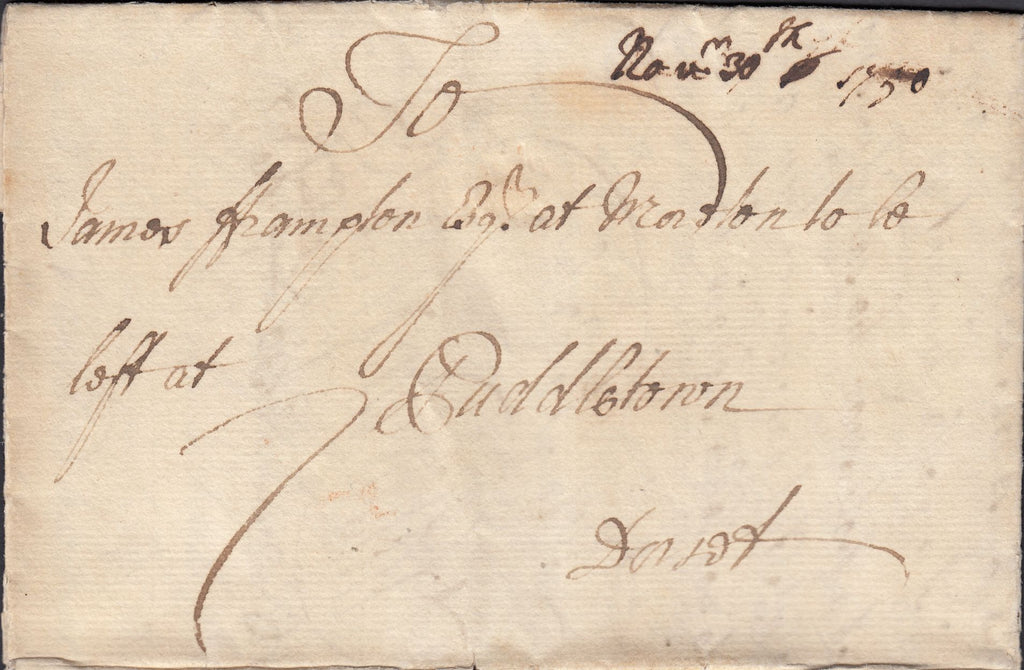 Nov.m 30th 1750
To
James fframpton Esqr. at Morton to be
left at
Puddletown
7
Dorset